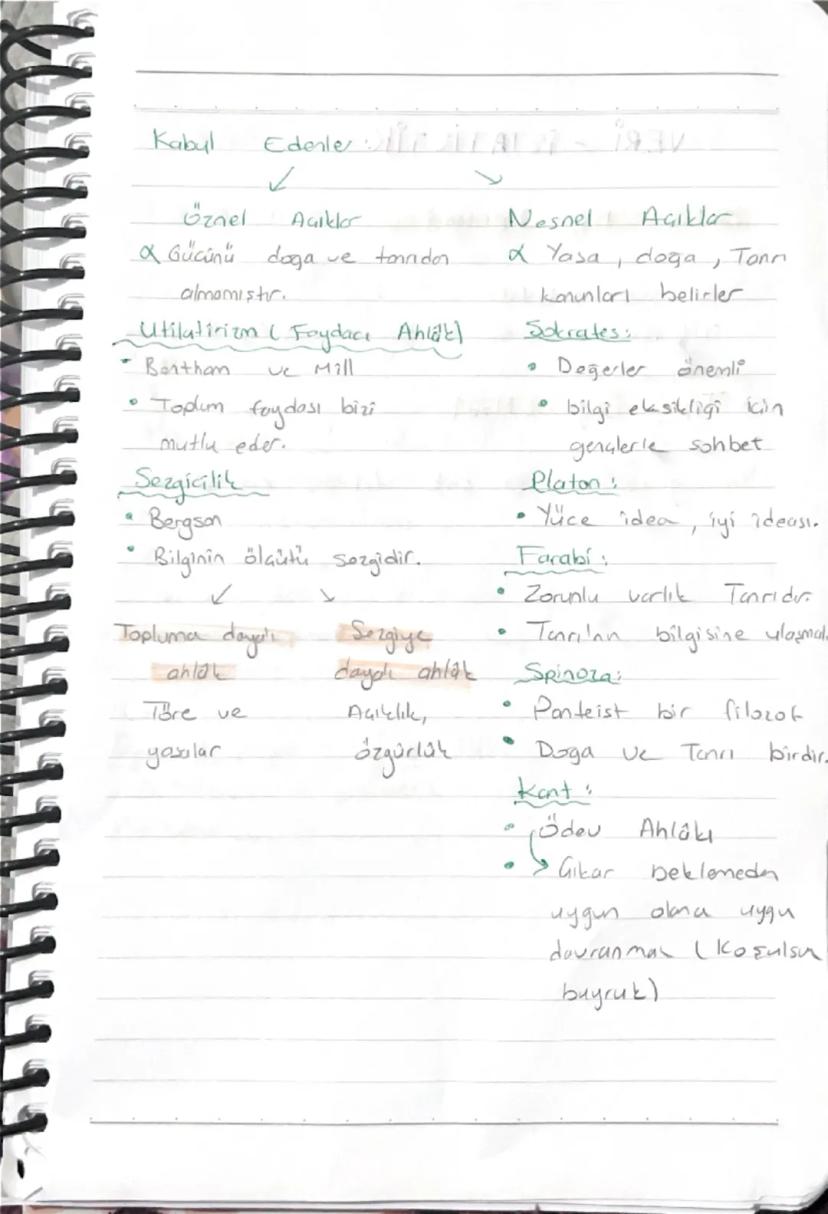 Kabul Edenler:
Öznel Açıklar
α Gücünü doğa ve tanrıdan
almamıştır.
Utilatirizm (Faydacı Ahlâk)
• Bentham ve Mill
• Toplum faydası bizi
mutlu eder.
Sezgicilik
• Bergson
• Bilginin ölçütü sezgidir.
Topluma dayalı
ahlâk
Töre ve
yasalar
Sezgiye
dayalı ahlâk
Açıklık,
özgürlük
Nesnel Açıklar
α Yasa, doğa, Tanrı
kanunları belirler
Sokrates:
• Değerler önemli
• bilgi eksikliği için
gençlerle sohbet
Platon:
• Yüce idea, iyi ideası.
Farabi:
• Zorunlu varlık Tanrıdır.
• Tanrı'nın bilgisine ulaşmak
Spinoza:
• Panteist bir filozof
• Doğa ve Tanrı birdir.
Kant:
• Ödev Ahlâkı
• Çıkar beklemeden
uygun olana uygu
davranmak (Koşulsuz
buyruk)